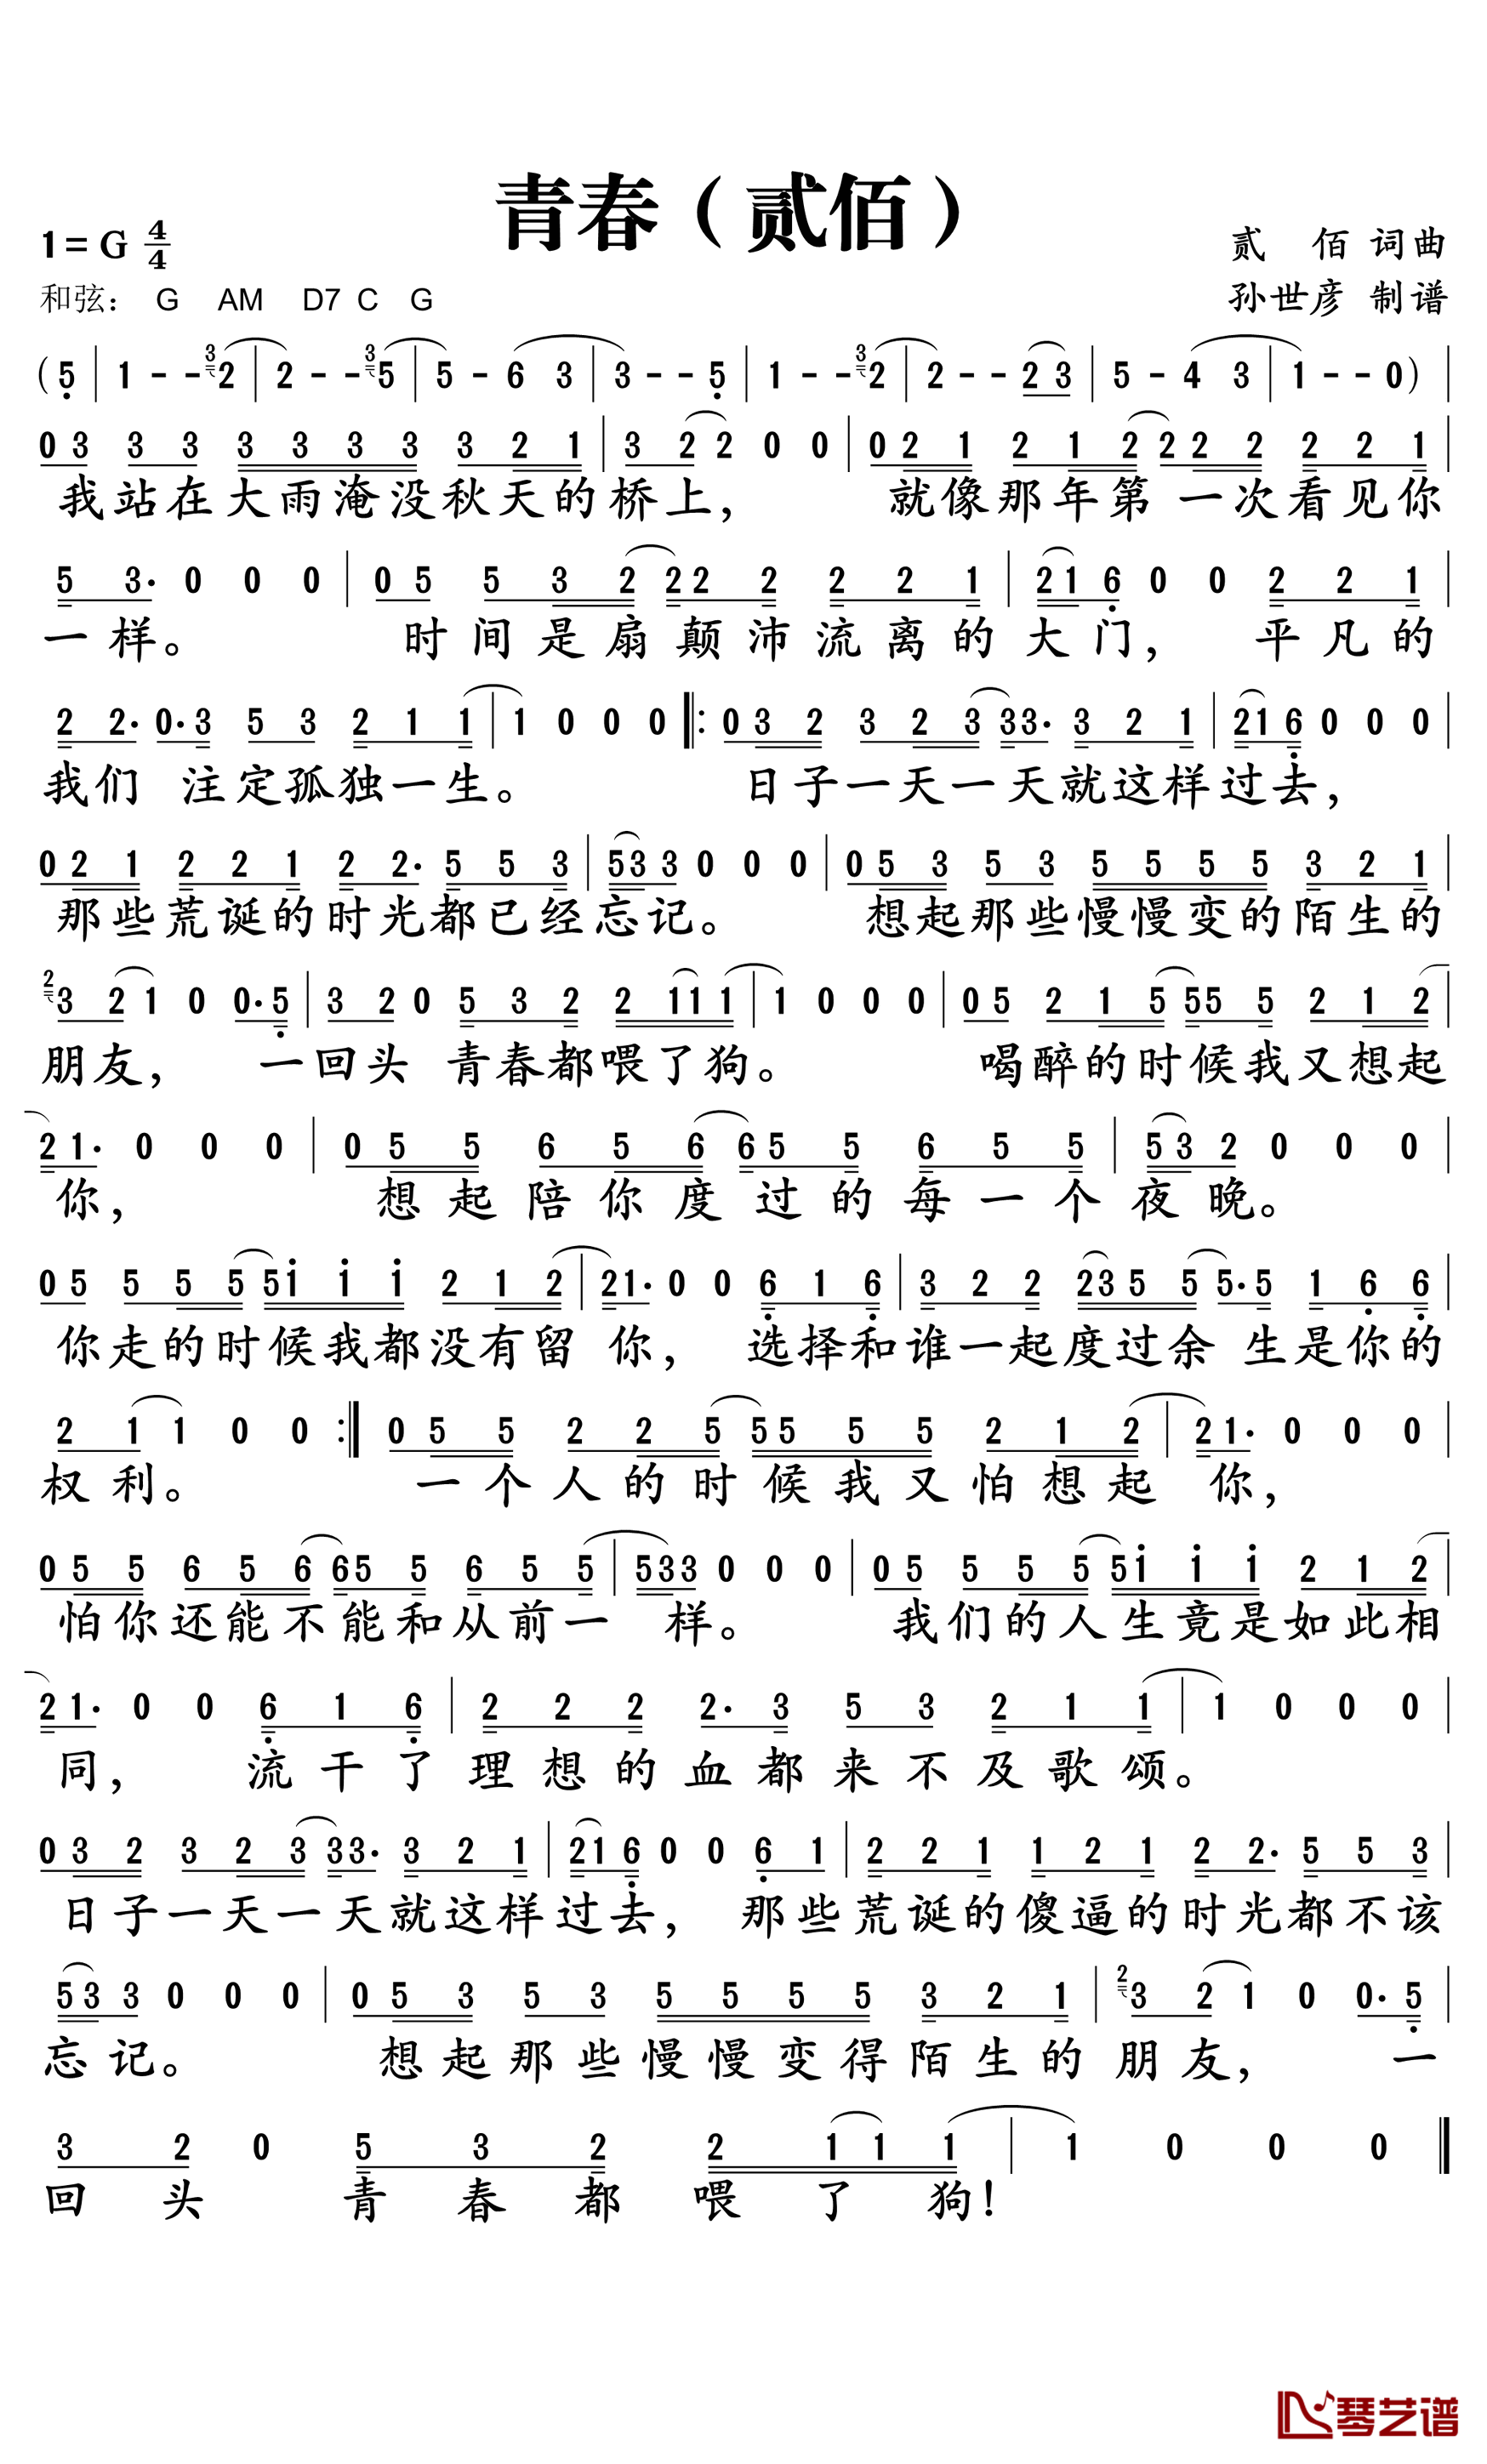 青春（贰佰）
1=G 4/4
贰 佰 词曲
和弦： G AM D7 C G
孙世彦 制谱
(5 | 1 - - 3 2 | 2 - - 3 5 | 5 - 6 3 | 3 - - 5 | 1 - - 3 2 | 2 - - 2 3 | 5 - 4 3 | 1 - - 0) |
0 3 3 3 3 3 3 3 3 2 1 | 3 2 2 0 0 | 0 2 1 2 1 2 2 2 2 2 2 1 |
我站在大雨淹没秋天的桥上， 就像那年第 一次看见你
5 3· 0 0 0 | 0 5 5 3 2 2 2 2 2 2 1 | 2 1 6 0 0 2 2 1 |
一样。 时间是扇颠沛流离的大门， 平凡的
2 2· 0· 3 5 3 2 1 1 | 1 0 0 0 |: 0 3 2 3 2 3 3 3· 3 2 1 | 2 1 6 0 0 0 |
我们 注定孤独一生。 日子一天一天就这样过去，
0 2 1 2 2 1 2 2· 5 5 3 | 5 3 3 0 0 0 | 0 5 3 5 3 5 5 5 5 3 2 1 |
那些荒诞的时光都已经忘记。 想起那些慢慢变的陌生的
2 3 2 1 0 0· 5 | 3 2 0 5 3 2 2 1 1 1 | 1 0 0 0 | 0 5 2 1 5 5 5 5 2 1 2 |
朋友， 一回头 青春都喂了狗。 喝醉的时候我又想起
2 1· 0 0 0 | 0 5 5 6 5 6 6 5 5 6 5 5 | 5 3 2 0 0 0 |
你， 想起陪你度过的每一个夜晚。
0 5 5 5 5 5 1 1 1 2 1 2 | 2 1· 0 0 6 1 6 | 3 2 2 2 3 5 5 5· 5 1 6 6 |
你走的时候我都没有留 你， 选择和谁一起度过余 生是你的
2 1 1 0 0 :| 0 5 5 2 2 5 5 5 5 5 2 1 2 | 2 1· 0 0 0 |
权利。 一个人的时候我又怕想起 你，
0 5 5 6 5 6 6 5 5 6 5 5 | 5 3 3 0 0 0 | 0 5 5 5 5 5 1 1 1 2 1 2 |
怕你还能不能和从前一 样。 我们的人生竟是如此相
2 1· 0 0 6 1 6 | 2 2 2 2· 3 5 3 2 1 1 | 1 0 0 0 |
同， 流干了理想的血都来不及歌颂。
0 3 2 3 2 3 3 3· 3 2 1 | 2 1 6 0 0 6 1 | 2 2 1 1 2 1 2 2· 5 5 3 |
日子一天一天就这样过去， 那些荒诞的傻逼的时光都不该
5 3 3 0 0 0 | 0 5 3 5 3 5 5 5 5 3 2 1 | 2 3 2 1 0 0· 5 |
忘记。 想起那些慢慢变得陌生的朋友， 一
3 2 0 5 3 2 2 1 1 1 | 1 0 0 0 ‖
回头 青春都喂了狗！
琴艺谱